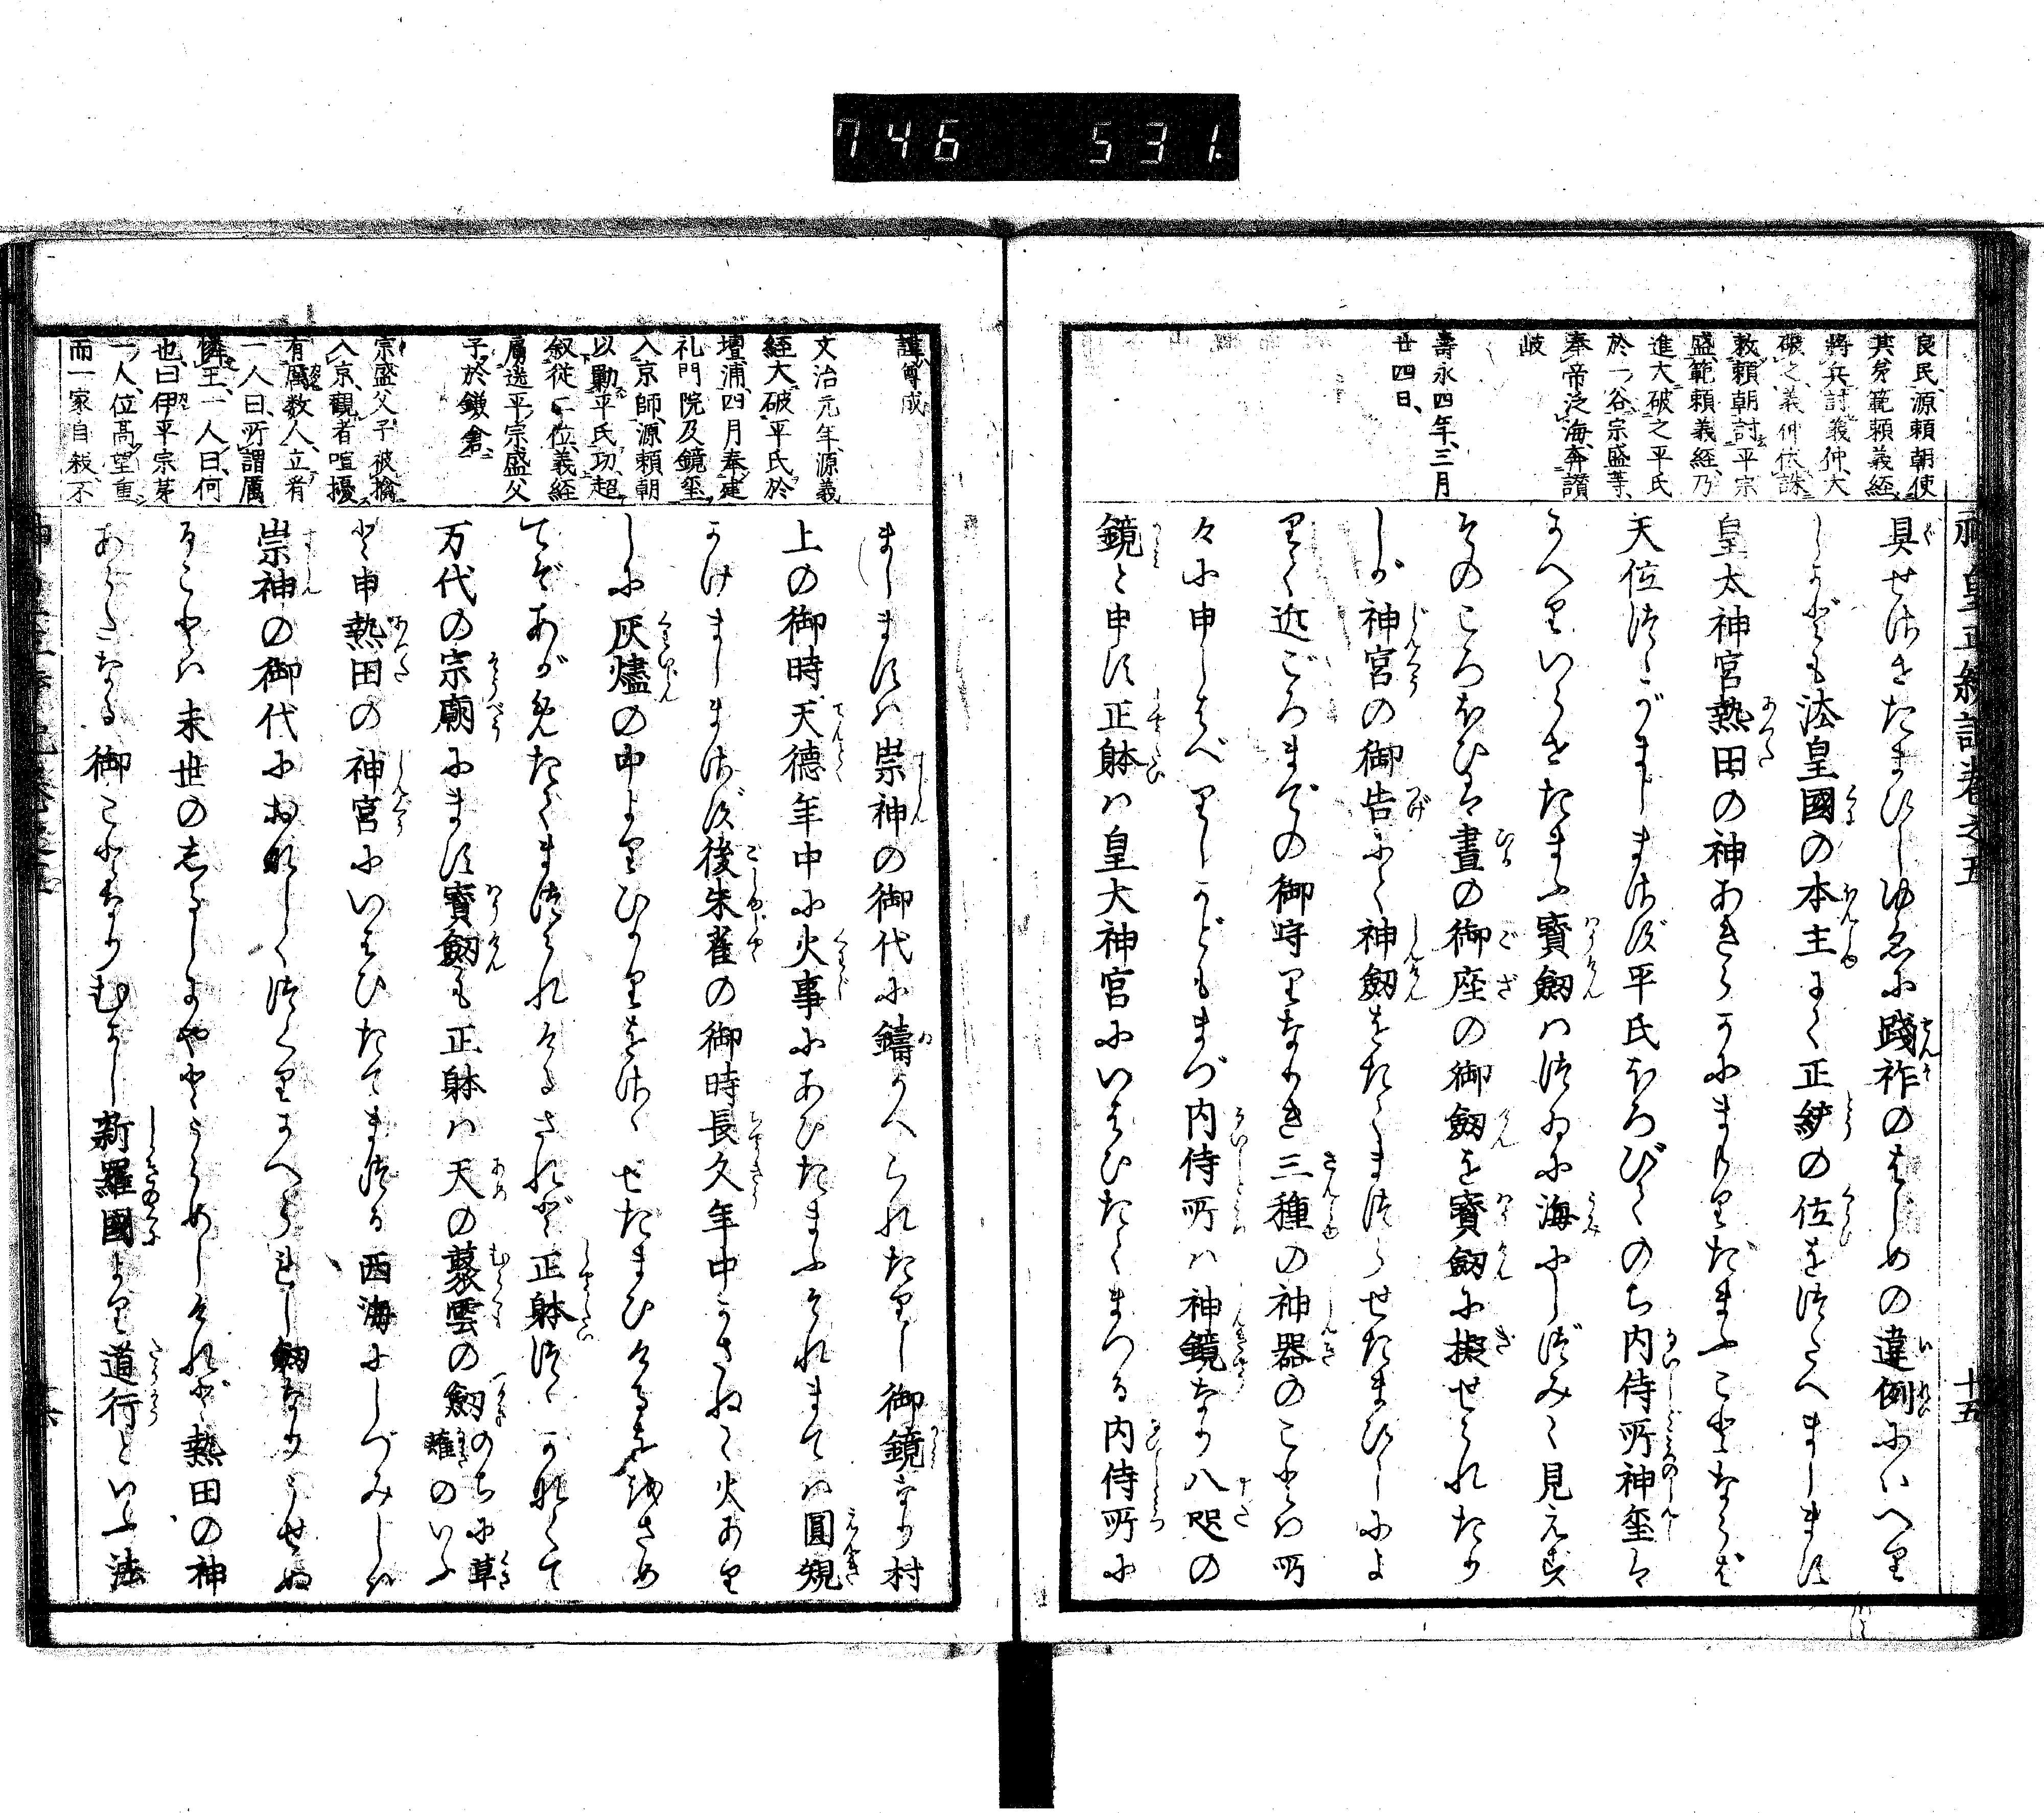 746 531.
神皇正統記巻之五 十五
良民、源頼朝使
其弟範頼義経、
將兵討義仲、大
破之、義仲伏誅
敕頼朝討平宗
盛、範頼義経、乃
進大破之平氏
於一谷、宗盛等、
奉帝泛海、奔讃
岐
壽永四年、三月
廿四日、
具せさせたまひしゆゑに踐祚のはじめの違例にハへり
しかども法皇國の本主にて正統の位をつたへましす
皇太神宮熱田の神あきらかにまもりたまふことなれば
天位つゝがましまさず平氏ほろびてのち内侍所神璽は
かへりいらせたまふ寳劔ハつゐに海にしづみて見えず
そのころほひは晝の御座の御劔を寳劔に擬せられたり
しが神宮の御告にて神劔をたてまつらせたまひしによ
りて近ごろまでの御守りなりき三種の神器のことハ所
々に申しはべりしかどもまづ内侍所ハ神鏡なり八咫の
鏡と申す正躰ハ皇大神宮にいはひたてまつる内侍所に
ましますハ崇神の御代に鑄かへられたりし御鏡なり村
上の御時、天德年中に火事にあひたまふそれまてハ圓規
かけましまさず後朱雀の御時長久年中かさねて火あり
しに灰燼の中よりひかりをさゝせたまひけるををさめ
てぞあがめたてまつられけるされど正躰つゝがなくて
万代の宗廟にまします寳劔も正躰ハ天の叢雲の劔のちに草
薙のいふ
と申熱田の神宮にいはひたてまつる西海にしづみしハ
崇神の御代におなしくつくりかへられし劔なりうせぬ
ることハ末世のしるしにやとうらめしけれど熱田の神
あらたなる御ことなりむかし新羅國より道行といふ法
謹尊成
文治元年、源義
経大破平氏於
壇浦、四月奉建
礼門院及鏡璽、
入京師、源頼朝
以勦平氏功、超
叙從二位、義経
屬送平宗盛父
子於鎌倉、
宗盛父子、被擒
入京、觀者喧擾
有厲数人、立肴
一人曰、所謂厲
憐王、一人曰、何
也、曰伊平宗茅
一人、位高望重
而一家自殺、不